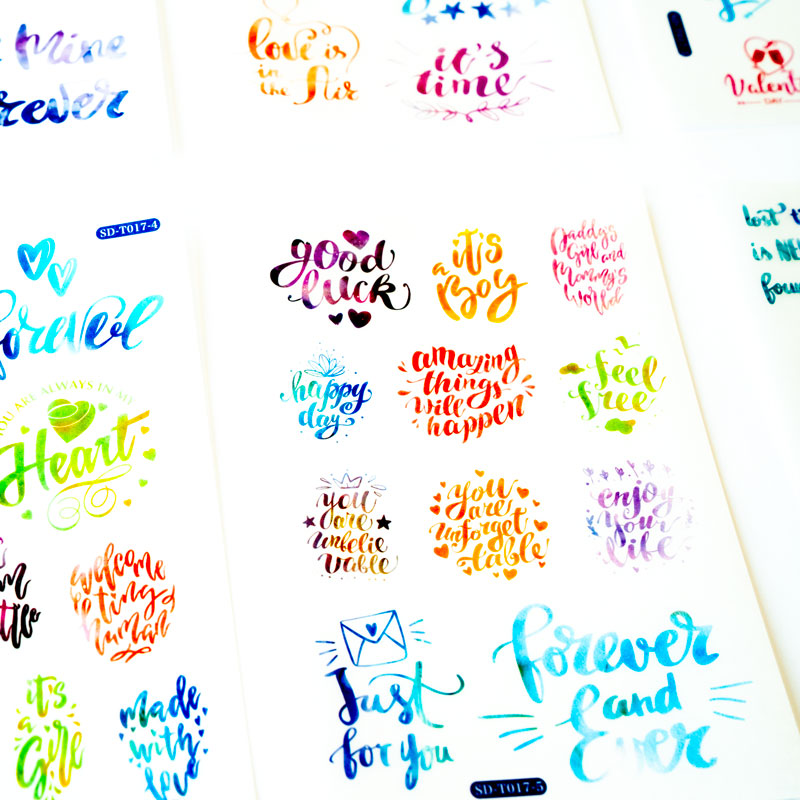 Mine
love is
in
the Air
it's
time
DAY
SD-T017-4
forever
YOU ARE ALWAYS IN MY
Heart
welcome
human
it's
a
Girl
made
with
love
good
luck
it's
a
Boy
Daddy's
Girl and
Mommy's
World
happy
day
amazing
things
will
happen
feel
free
you
are
unbelie
vable
you
are
unforget
table
enjoy
your
life
Just
for you
forever
and
Ever
SD-T017-5
lost
is